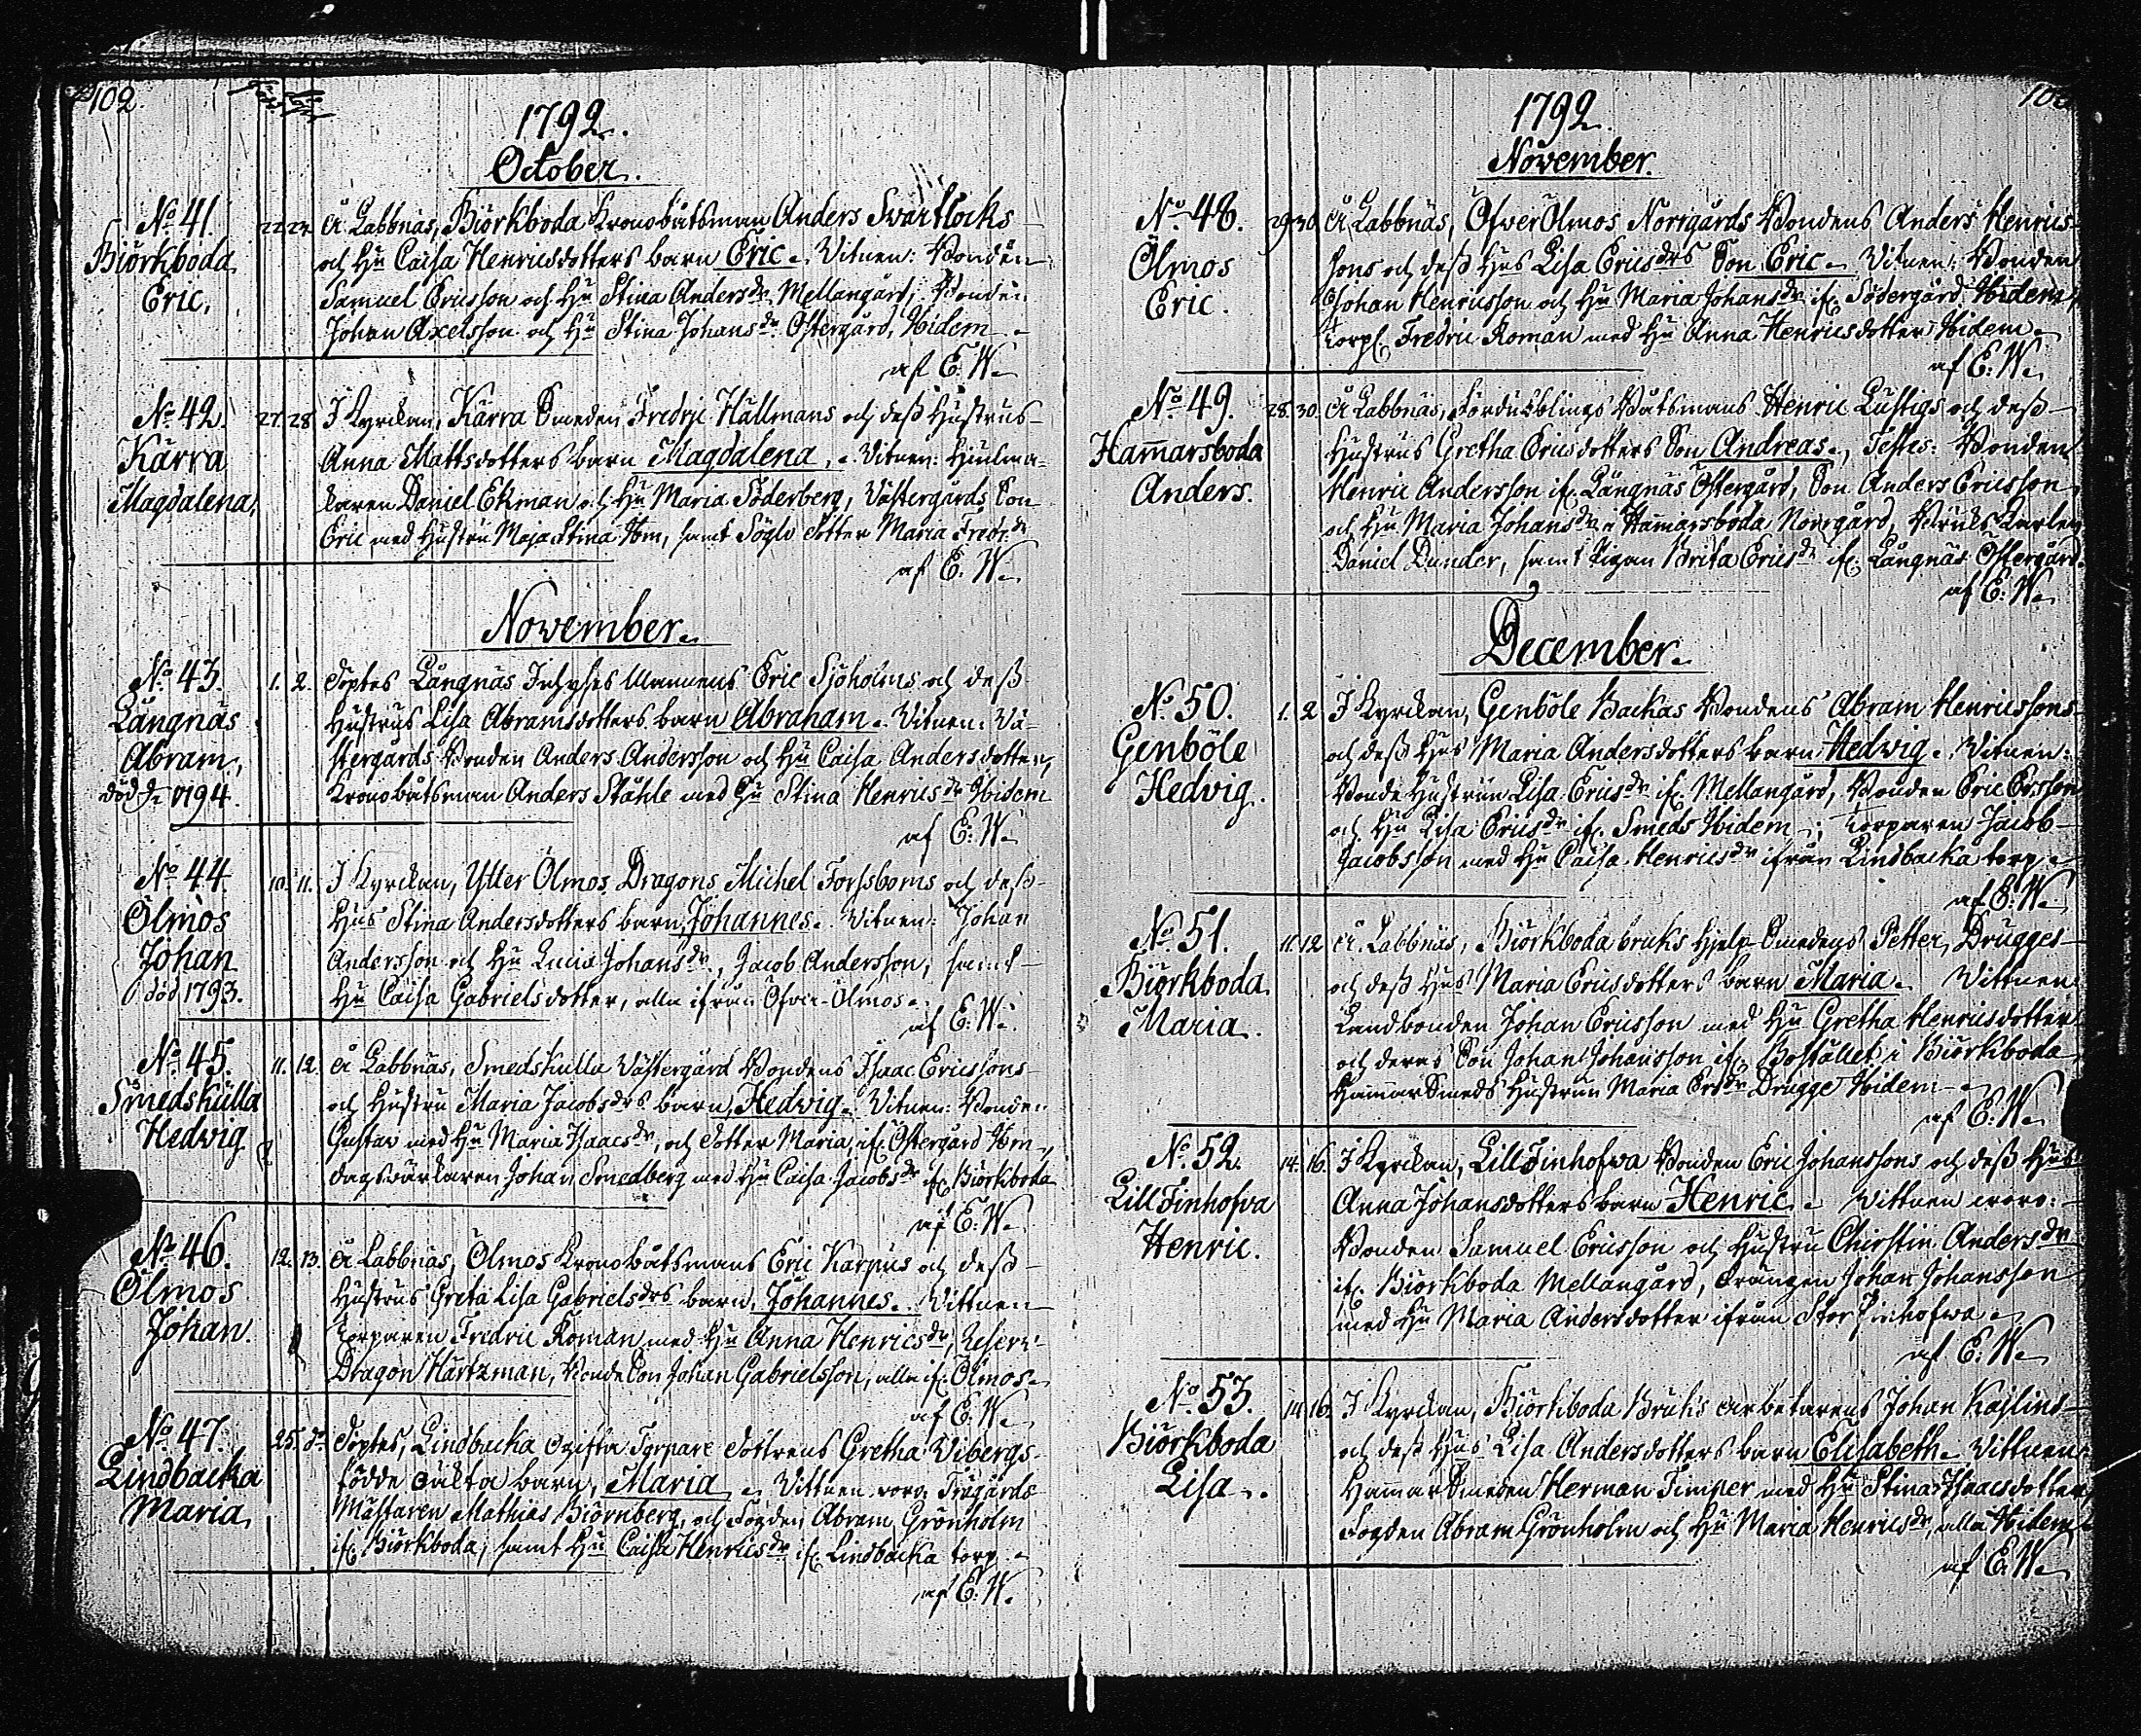 102
1792.
October.
No 41. 22. 23. å Labbnäs, Biörkboda Kronobåtsman Anders Swartlocks
Biörkboda och Hu Caisa Henricsdotters barn Eric. Vitnen: Bonden
Eric. Samuel Ericsson och Hu Stina Andersdr Mellangård, Bonden
Johan Axelsson och Hu Stina Johansdr Östergård, Ibidem
af E. W.
No 42. 27. 28. I Kyrckan, Kärra Smeden Fredric Hällmans och dess Hustrus
Kärra Anna Mattsdotters barn Magdalena. Vitnen: Hjulma-
Magdalena, karen Daniel Ekman och Hu Maria Söderberg, Västergårds Son
Eric med Hustru Maja Stina Ibm, samt Dotter Maria Fredr.dr
af E. W.
November.
No 43. 1. 2. Döptes Långnäs Inhyses Mannens Eric Sjöholms och dess
Långnäs Hustrus Lisa Abramsdotters barn Abraham. Vitnen: Vä-
Abram, stergårds Bonden Anders Andersson och Hu Caisa Andersdotter,
död 1794. Kronobåtsman Anders Ståhle med Hu Stina Henricsdr Ibidem
af E: W.
No 44 10. 11. I Kyrckan, Ytter Ölmos Dragons Michel Forssboms och dess
Ölmos Hus Stina Andersdotters barn Johannes. Vitnen: Johan
Johan Andersson och Hu Lucia Johansdr, Jacob Andersson, samt
död 1793. Hu Caisa Gabrielsdotter, alla ifrån Öfver-Ölmos.
af E. W.
No 45. 11. 12. å Labbnäs, Smedskulla Västergård Bondens Isaac Ericssons
Smedskulla och Hustru Maria Jacobsdrs barn Hedvig. Vitnen: Bonden
Hedvig Gustav med Hu Maria Isaacsdr, och Dotter Maria, if. Östergård Ibm,
dagsvärkaren Johan Smedberg med Hu Caisa Jacobsdr if. Biörkboda
af E. W.
No 46. 12. 13. å Labbnäs, Ölmos Kronobåtsmans Eric Karpus och dess
Ölmos Hustrus Greta Lisa Gabrielsdrs barn, Johannes. Vittnen
Johan. Torparen Fredric Roman med Hu Anna Henricsdr, Reserv-
Dragon Härtzman, Bonde Son Johan Gabrielsson, alla if. Ölmos.
af E. W.
No 47. 25. do Döptes, Lindbacka ogifta Torpare Dottrens Gretha Vibergs
Lindbacka födde oäkta barn, Maria. Vittnen voro Trägårds
Maria. Mästaren Mathias Biörnberg, och Fogden Abram Grönholm
if. Biörkboda, samt Hu Caisa Henricsdr if. Lindbacka torp.
af E. W.
1792.
November.
No 48. 29. 30. å Labbnäs, Öfwer Ölmos Norrgårds Bondens Anders Henrics-
Ölmos sons och dess Hus Lisa Ericsdrs Son Eric. Vitnen: Bonden
Eric. Johan Henricsson och Hu Maria Johansdr if. Södergård Ibidem,
Torp. Fredric Roman med Hu Anna Henricsdotter Ibidem.
af E. W.
No 49. 28. 30. å Labbnäs, Båtsmans Henric Lustigs och dess
Hammarsboda Hustrus Gretha Ericsdotters Son Andreas., Testes: Bonden
Anders. Henric Andersson if. Långnäs Östergård, Son Anders Ericsson
och Hu Maria Johansdr Hammarsboda Norrgård, Bruks Karlen
Daniel Dunder, samt Pigan Brita Ericsdr if. Långnäs Östergård.
af E. W.
December.
No 50. 1. 2 I Kyrckan, Genböle Backas Bondens Abram Henricssons
Genböle och dess Hus Maria Andersdotters barn Hedwig. Vitnen:
Hedvig. Bonde Hustrun Lisa Ericsdr if. Mellangård, Bonden Eric Ersson
och Hu Lisa Ericsdr if. Smeds Ibidem; Torparen Jacob
Jacobsson med Hu Caisa Henricsdr ifrån Lindbacka torp.
af E. W.
No 51. 11. 12 å Labbnäs, Biörkboda bruks Hjelp Smedens Petter Drugges
Biörkboda och dess Hus Maria Ericsdotters barn Maria. Vittnen
Maria. Landbonden Johan Ericsson med Hu Gretha Henricsdotter
och deras Son Johan Johansson if. Bostället i Biörkboda
Hammar Smeds Hustrun Maria Ersdr Drugge Ibidem
af E. W.
No 52. 14. 16. I Kyrckan, Lill Finhofva Bonden Eric Johanssons och dess Hus
Lill Finhofva Anna Johansdotters barn Henric. Vittnen voro:
Henric. Bonden Samuel Ericsson och Hustru Chirstin Andersdr
if. Biörkboda Mellangård, Drängen Johan Johansson
med Hu Maria Andersdotter ifrån Stor Finhofwa.
af E. W.
No 53. 14. 16. I Kyrckan, Biörkboda Bruks arbetarens Johan Kajlins
Biörkboda och dess Hus Lisa Andersdotters barn Elisabeth. Vittnen
Lisa. Hammar Smeden Herman Timper med Hu Stina Isaacsdotter,
Fogden Abram Grönholm och Hu Maria Henricsdr, alla Ibidem
af E. W.